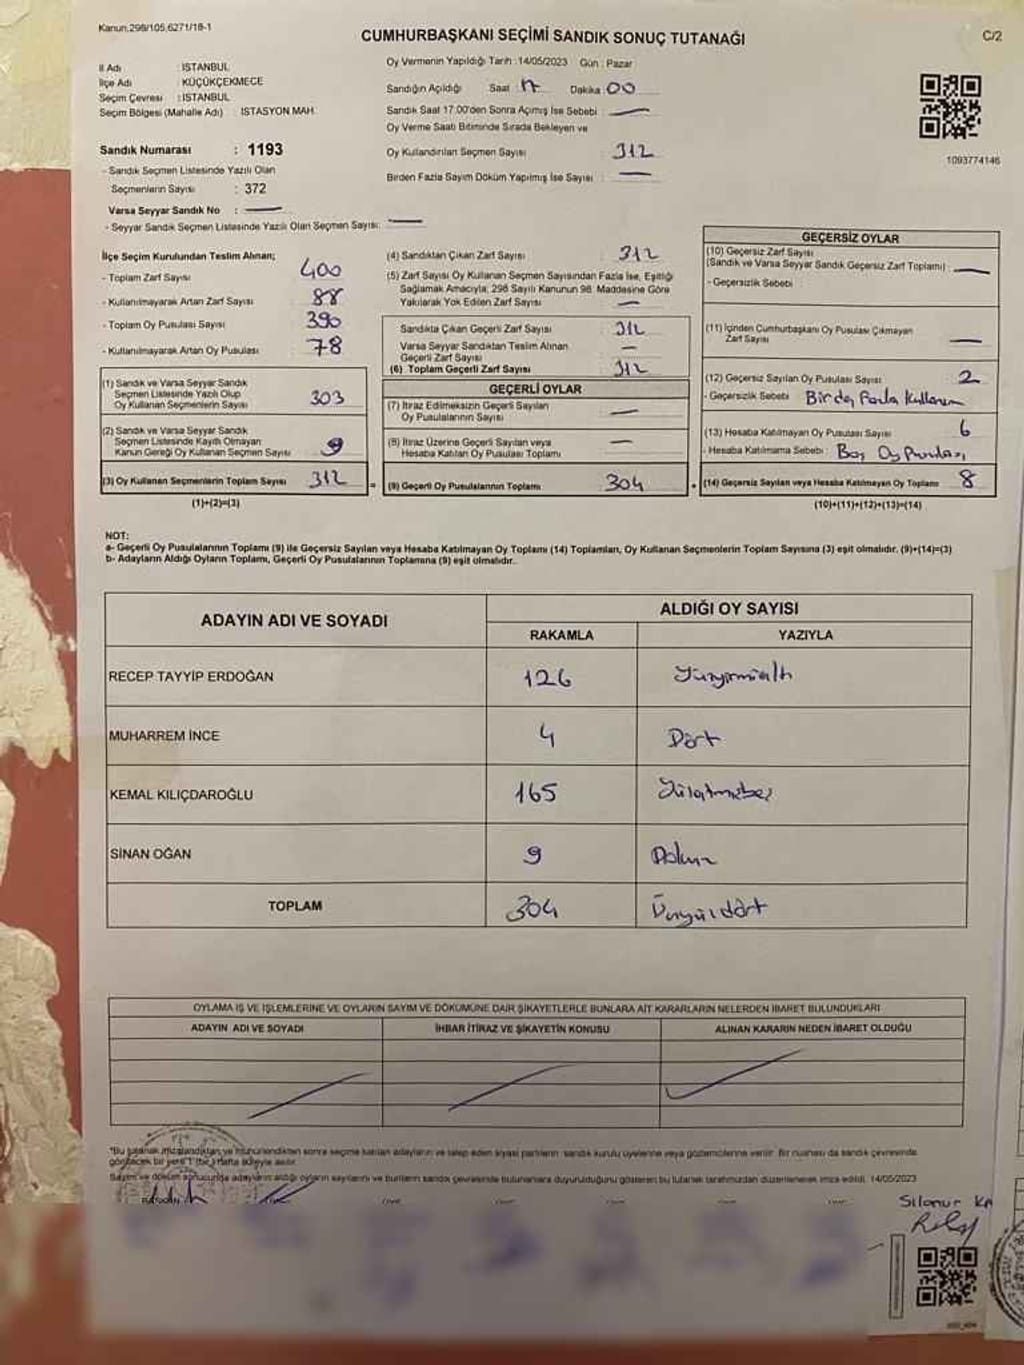 Kanun.298/105,6271/18-1
CUMHURBAŞKANI SEÇİMİ SANDIK SONUÇ TUTANAĞI
C/2
İl Adı : İSTANBUL
İlçe Adı : KÜÇÜKÇEKMECE
Seçim Çevresi : İSTANBUL
Seçim Bölgesi (Mahalle Adı) : İSTASYON MAH.
Sandık Numarası : 1193
- Sandık Seçmen Listesinde Yazılı Olan
Seçmenlerin Sayısı : 372
Varsa Seyyar Sandık No :
- Seyyar Sandık Seçmen Listesinde Yazılı Olan Seçmen Sayısı:
Oy Vermenin Yapıldığı Tarih :14/05/2023 Gün : Pazar
Sandığın Açıldığı Saat : 17 Dakika : 00
Sandık Saat 17:00'den Sonra Açımış İse Sebebi :
Oy Verme Saati Bitiminde Sırada Bekleyen ve
Oy Kullandırılan Seçmen Sayısı : 312
Birden Fazla Sayım Döküm Yapılmış İse Sayısı :
1093774146
İlçe Seçim Kurulundan Teslim Alınan;
- Toplam Zarf Sayısı : 400
- Kullanılmayarak Artan Zarf Sayısı : 88
- Toplam Oy Pusulası Sayısı : 390
- Kullanılmayarak Artan Oy Pusulası : 78
(1) Sandık ve Varsa Seyyar Sandık
Seçmen Listesinde Yazılı Olup
Oy Kullanan Seçmenlerin Sayısı : 303
(2) Sandık ve Varsa Seyyar Sandık
Seçmen Listesinde Kayıtlı Olmayan
Kanun Gereği Oy Kullanan Seçmen Sayısı : 9
(3) Oy Kullanan Seçmenlerin Toplam Sayısı : 312 =
(1)+(2)=(3)
(4) Sandıktan Çıkan Zarf Sayısı : 312
(5) Zarf Sayısı Oy Kullanan Seçmen Sayısından Fazla İse, Eşitliği
Sağlamak Amacıyla; 298 Sayılı Kanunun 98. Maddesine Göre
Yakılarak Yok Edilen Zarf Sayısı :
Sandıkta Çıkan Geçerli Zarf Sayısı : 312
Varsa Seyyar Sandıktan Teslim Alınan
Geçerli Zarf Sayısı :
(6) Toplam Geçerli Zarf Sayısı : 312
GEÇERLİ OYLAR
(7) İtiraz Edilmeksizin Geçerli Sayılan
Oy Pusulalarının Sayısı :
(8) İtiraz Üzerine Geçerli Sayılan veya
Hesaba Katılan Oy Pusulası Toplamı :
(9) Geçerli Oy Pusulalarının Toplamı : 304 +
GEÇERSİZ OYLAR
(10) Geçersiz Zarf Sayısı
(Sandık ve Varsa Seyyar Sandık Geçersiz Zarf Toplamı) :
- Geçersizlik Sebebi :
(11) İçinden Cumhurbaşkanı Oy Pusulası Çıkmayan
Zarf Sayısı :
(12) Geçersiz Sayılan Oy Pusulası Sayısı : 2
- Geçersizlik Sebebi : Birden Fazla Kullanım
(13) Hesaba Katılmayan Oy Pusulası Sayısı : 6
- Hesaba Katılmama Sebebi : Boş Oy Pusulası
(14) Geçersiz Sayılan veya Hesaba Katılmayan Oy Toplamı : 8
(10)+(11)+(12)+(13)=(14)
NOT:
a- Geçerli Oy Pusulalarının Toplamı (9) ile Geçersiz Sayılan veya Hesaba Katılmayan Oy Toplamı (14) Toplamları, Oy Kullanan Seçmenlerin Toplam Sayısına (3) eşit olmalıdır. (9)+(14)=(3)
b- Adayların Aldığı Oyların Toplamı, Geçerli Oy Pusulalarının Toplamına (9) eşit olmalıdır.
ADAYIN ADI VE SOYADI
ALDIĞI OY SAYISI
RAKAMLA YAZIYLA
RECEP TAYYİP ERDOĞAN 126 Yüzyirmialtı
MUHARREM İNCE 4 Dört
KEMAL KILIÇDAROĞLU 165 Yüzatmışbeş
SİNAN OĞAN 9 Dokuz
TOPLAM 304 Üçyüzdört
OYLAMA İŞ VE İŞLEMLERİNE VE OYLARIN SAYIM VE DÖKÜMÜNE DAİR ŞİKAYETLERLE BUNLARA AİT KARARLARIN NELERDEN İBARET BULUNDUKLARI
ADAYIN ADI VE SOYADI İHBAR İTİRAZ VE ŞİKAYETİN KONUSU ALINAN KARARIN NEDEN İBARET OLDUĞU
*Bu tutanak imzalandıktan ve mühürlendikten sonra seçime katılan adayların ve talep eden siyasi partilerin sandık kurulu üyelerine veya gözlemcilerine verilir. Bir nüshası da sandık çevresinde
görülecek bir yere 1 (bir) hafta süreyle asılır.
Sayım ve döküm sonucunda adayların aldığı oyların sayılarını ve bunların sandık çevresinde bulunanlara duyurulduğunu gösteren bu tutanak tarafımızdan düzenlenerek imza edildi. 14/05/2023